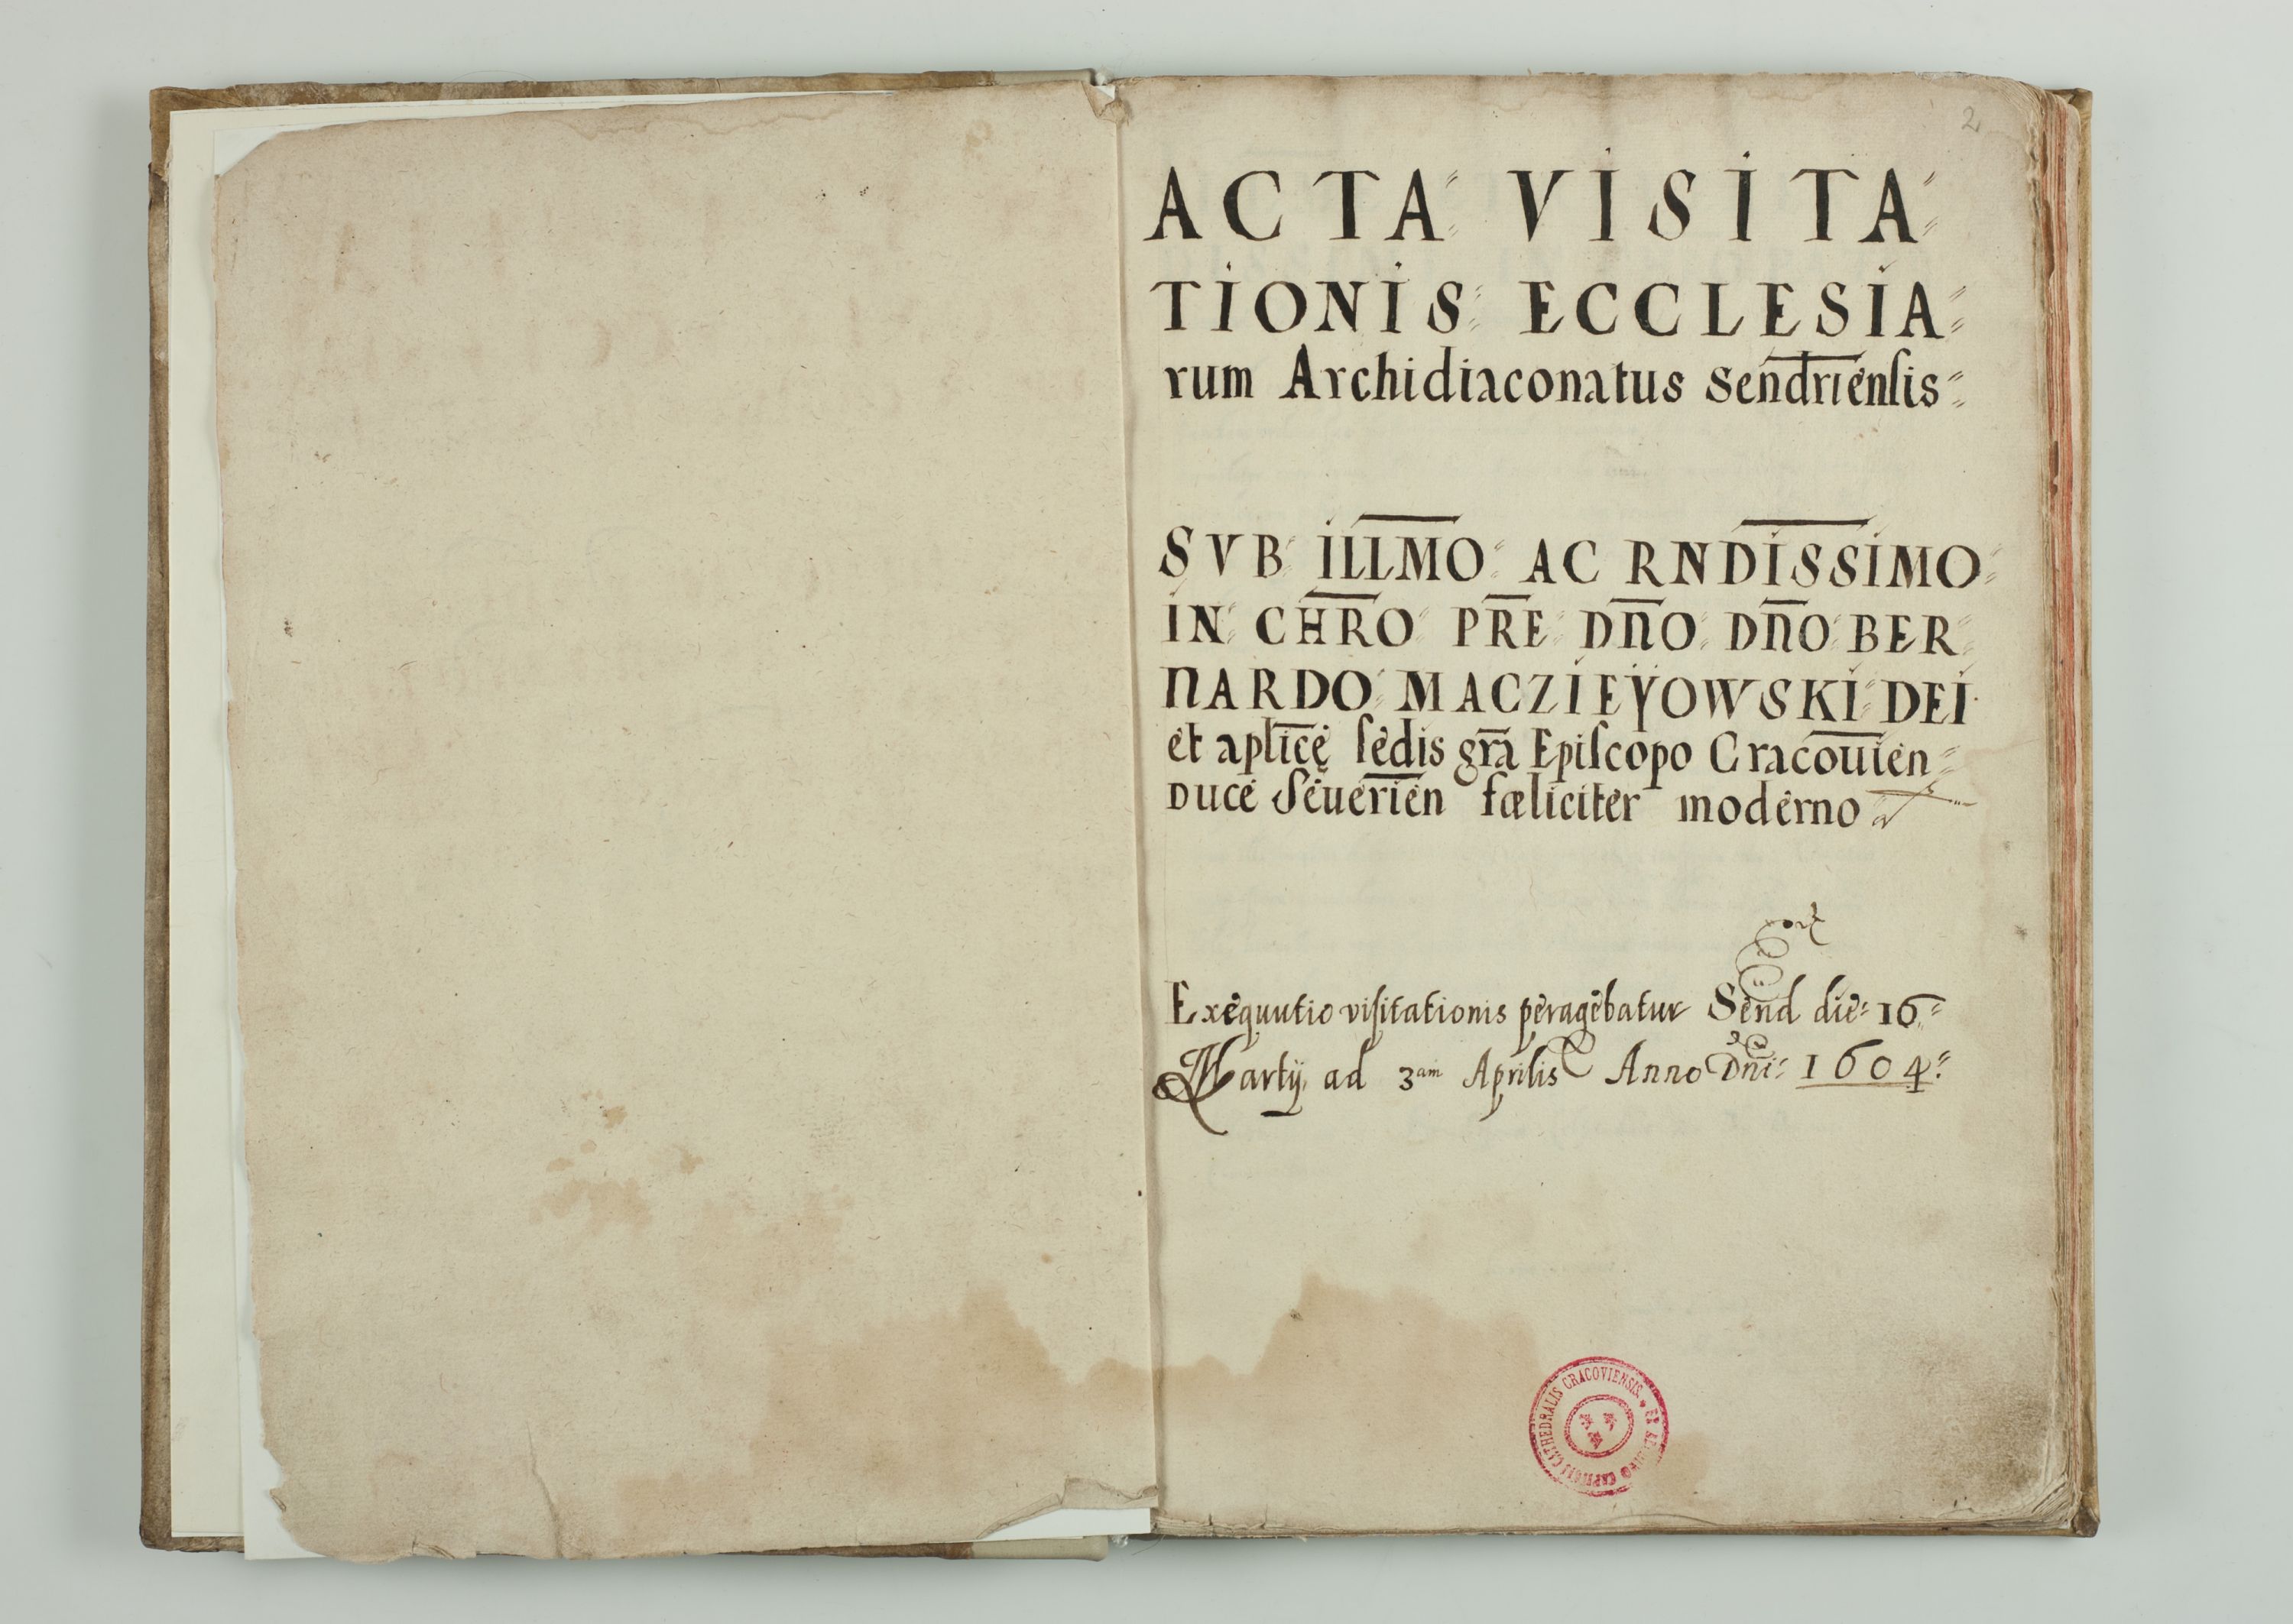 2
ACTA VISITA
TIONIS ECCLESIA
rum Archidiaconatus Sendriensis
SVB ILLMO AC RNDISSIMO
IN CHRO PRE DNO DNO BER
NARDO MACZIEYOWSKI DEI
et aplicę sedis gra Episcopo Cracouien
Duce Seuerien fæliciter moderno
Exequutio visitationis peragebatur Send die 16
Martij ad 3am Aprilis Anno Dni 1604
CATHEDRALIS CRACOVIENSIS